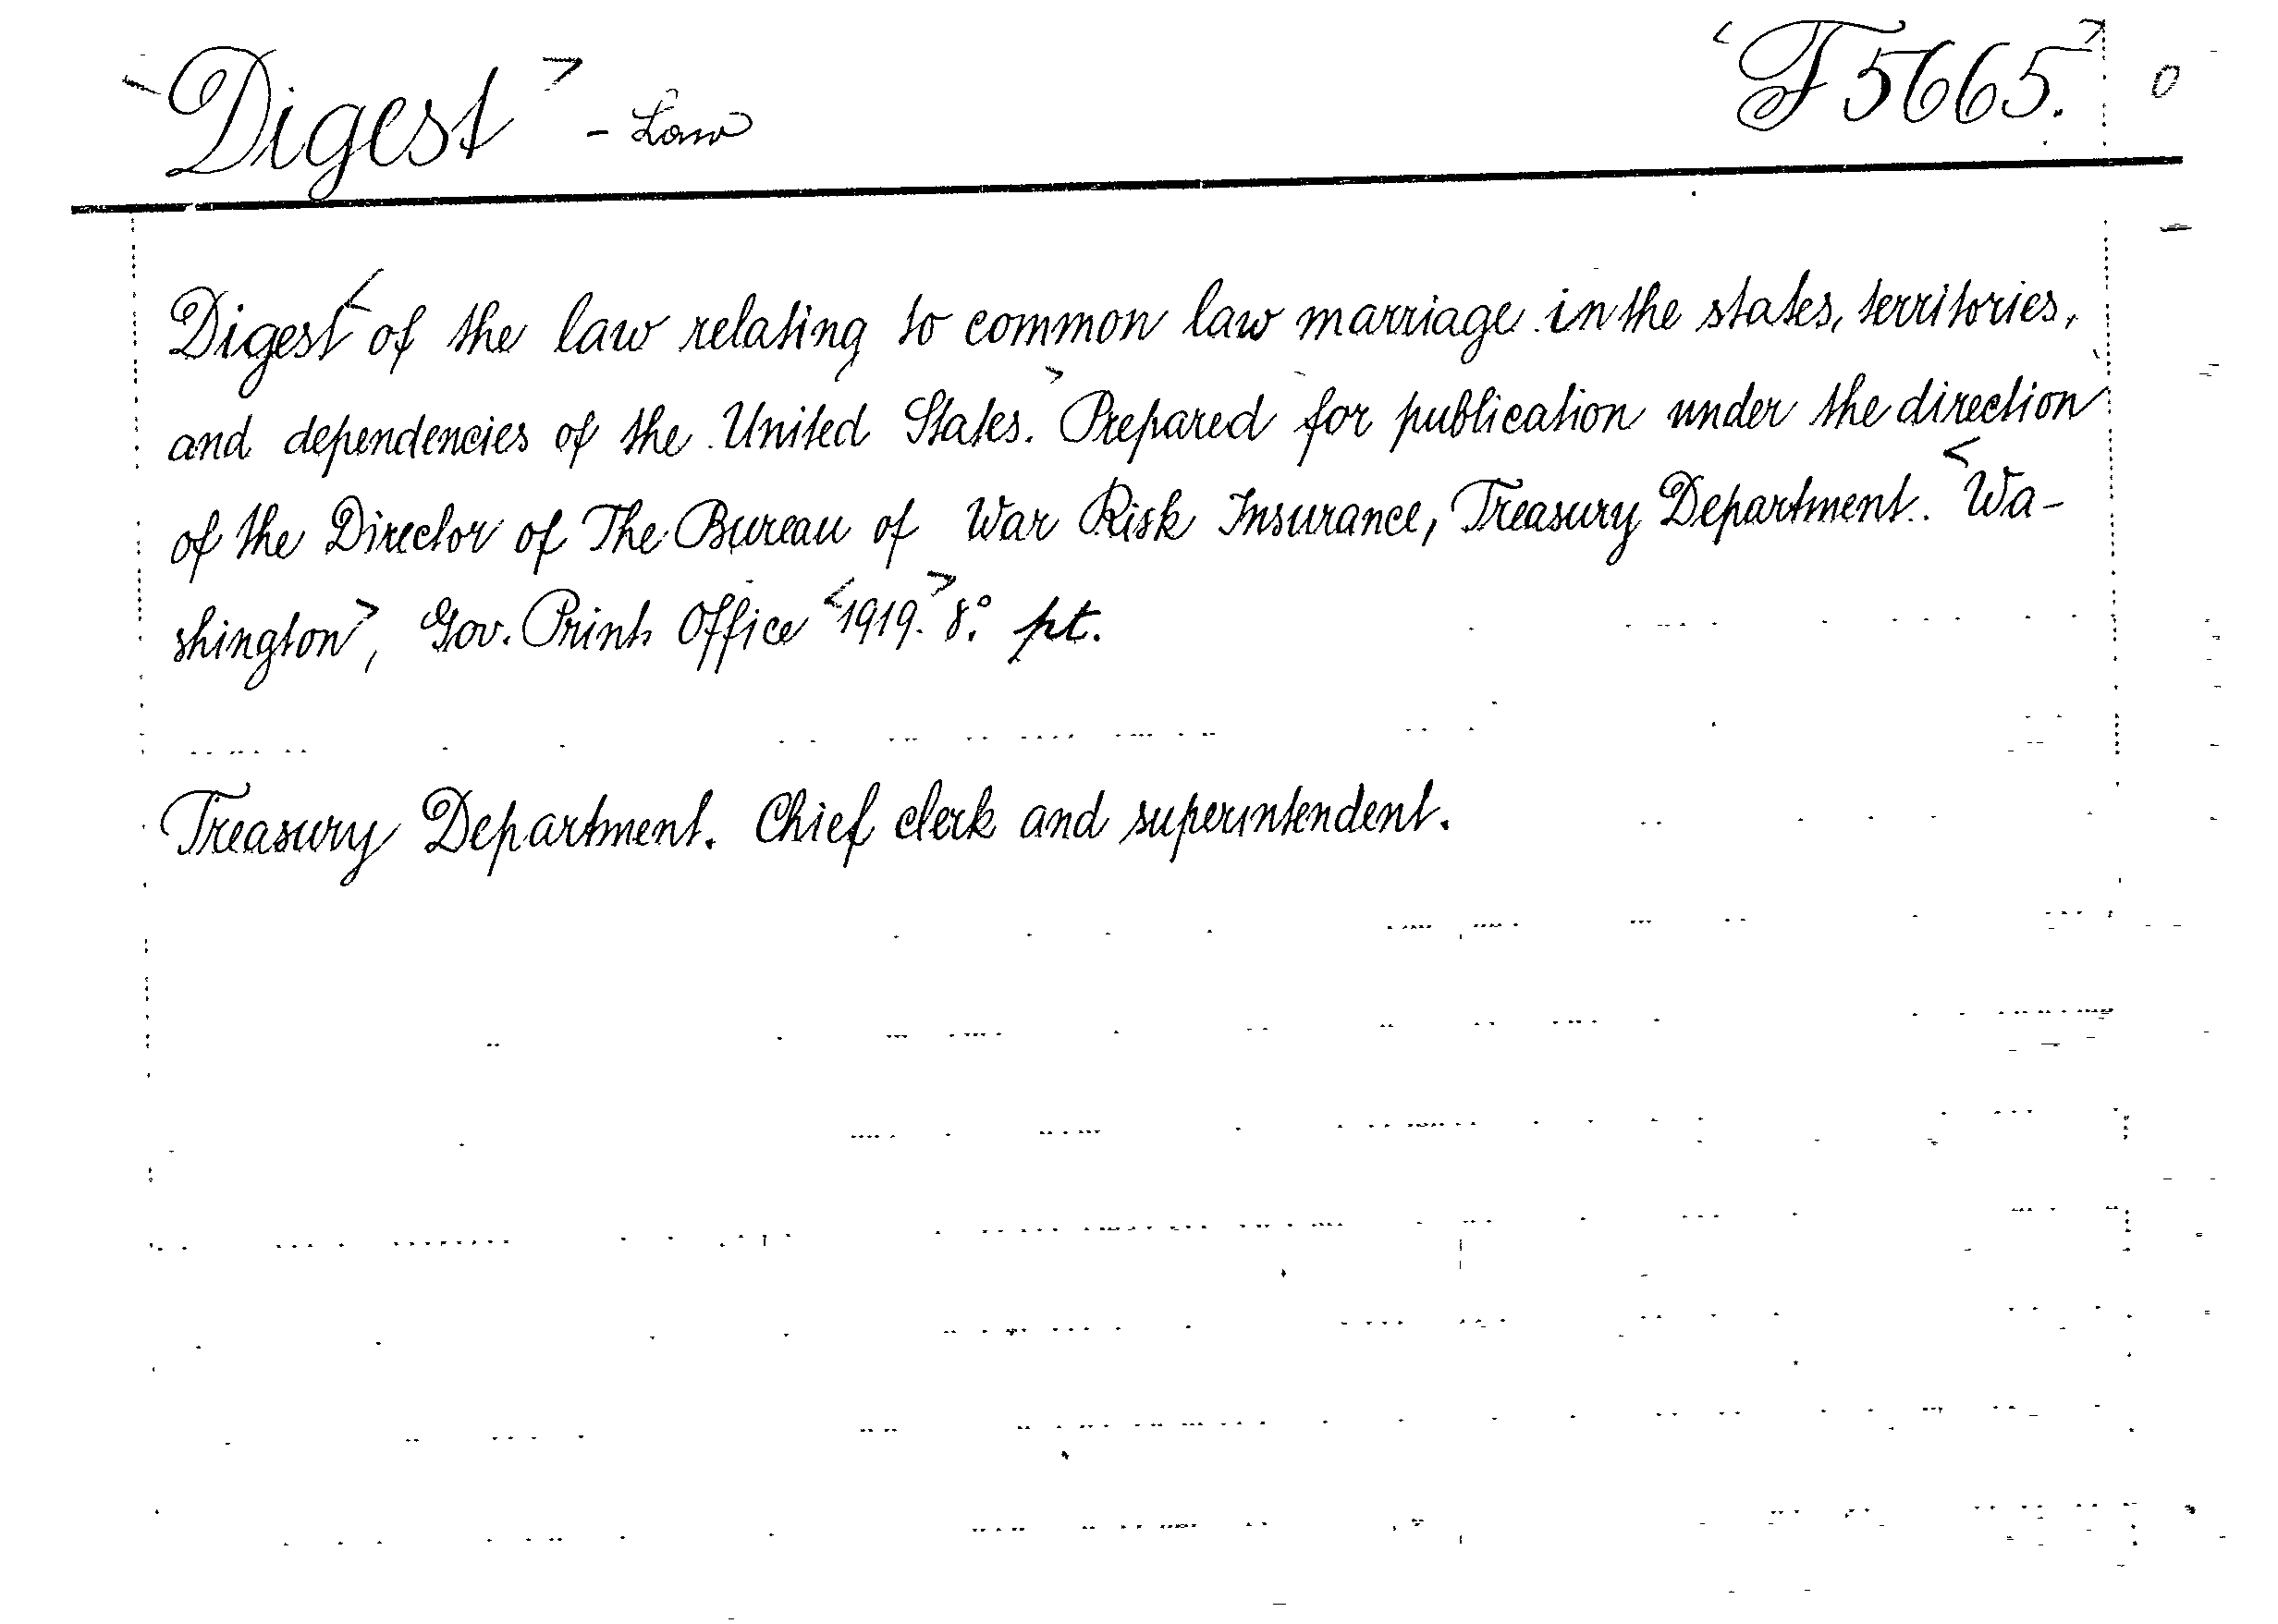 <Digest> - Law <F 5665.> 0
Digest< of the law relating to common law marriage in the states, territories,
and dependencies of the United States.> Prepared for publication under the direction
of the Director of The Bureau of War Risk Insurance, Treasury Department.. <Wa-
shington>, Gov. Print. Office <1919.> 8.° pt.
Treasury Department. Chief clerk and superintendent.